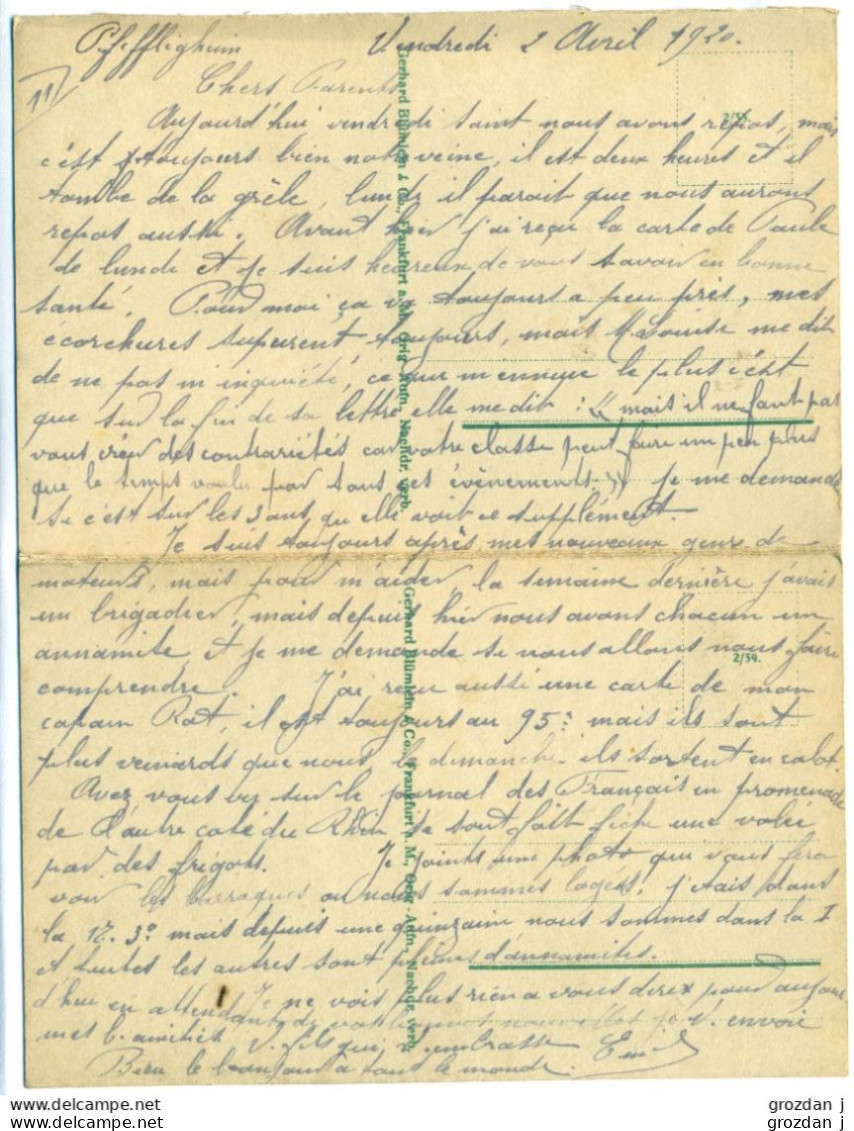 Pfeffligheim Vendredi 2 Avril 1920.
11
Chers Parents
Aujourd'hui vendredi saint nous avons repos, mais
c'est toujours bien notre veine, il est deux heures et il
tombe de la grêle, lundi il parait que nous aurons
repos aussi. Avant hier j'ai reçu la carte de Paule
de lundi et je suis heureux de vous savoir en bonne
santé. Pour moi ça va toujours a peu près, mes
écorchures supurent toujours, mais M. Louise me dit
de ne pas m'inquiété, ce qui m'ennuie le plus c'est
que sur la fin de sa lettre elle me dit : "mais il ne faut pas
vous créer des contrariétés car votre classe peut faire un peu plus
que le temps voulu par tous ces évènements" je me demande
si c'est sur les 3 ans qu'elle voit ce supplément.
Je suis toujours après mes nouveaux genre de
moteurs, mais pour m'aider la semaine dernière j'avais
un brigadier, mais depuis hier nous avons chacun un
annamite et je me demande si nous allons nous faire
comprendre. J'ai reçu aussi une carte de mon
copain Rat, il est toujours au 95e mais ils sont
plus veinards que nous le dimanche ils sortent en calot.
Avez vous vu sur le journal des Français en promenade
de l'autre coté du Rhin se sont fait fiche une volée
par des frigots. Je joints une photo qui vous fera
voir les barraques ou nous sommes logés, j'étais dans
la 12. 3e mais depuis une quinzaine nous sommes dans la I
et toutes les autres sont pleines d'annamites.
Je ne vois plus rien a vous direz pour aujour
d'hui en attendant de vos bonnes nouvelles je v. envoie
mes b. amitiés V. fils qui v. embrasse Em
Bien le bonjour a tout le monde.
Gerhard Blümlein & Co., Frankfurt a. M., Orig.-Aufn., Nachdr. verb.
Gerhard Blümlein & Co., Frankfurt a. M., Orig.-Aufn., Nachdr. verb.
2/35.
2/39.
grozdan j
grozdan j